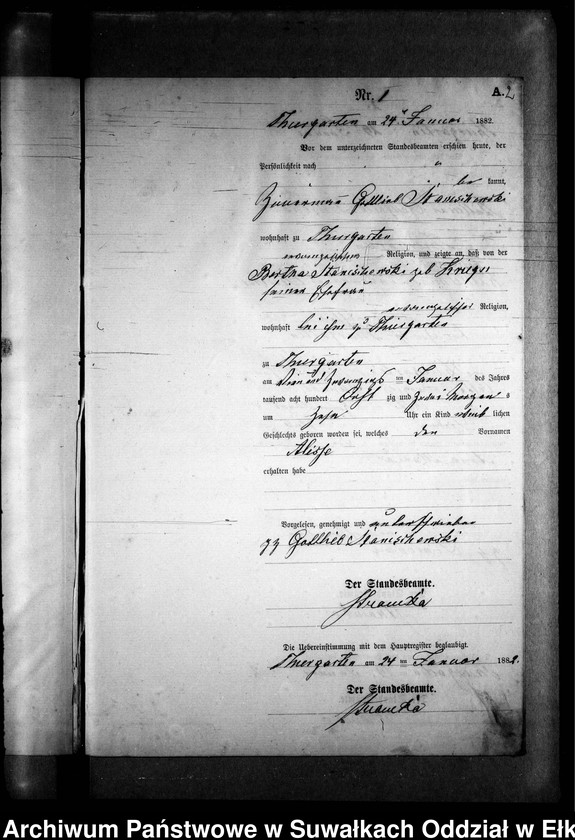 Nr. 1
A. 2
Thiergarten am 24 Januar 1882.
Vor dem unterzeichneten Standesbeamten erschien heute, der
Persönlichkeit nach
be kannt,
Gottlieb Stanischewski
wohnhaft zu Thiergarten
evangelischer Religion, und zeigte an, daß von der
Bertha Stanischewski geb Krieger
seiner Ehefrau
evangelischer Religion,
wohnhaft bei ihm zu Thiergarten
zu Thiergarten
am vier und zwanzigs ten Januar des Jahres
tausend acht hundert Acht zig und zwei Morgens
um zehn Uhr ein Kind weib lichen
Geschlechts geboren worden sei, welches den Vornamen
erhalten habe
Vorgelesen, genehmigt und unterschrieben
gz Gottlieb Stanischewski
Der Standesbeamte.
Die Uebereinstimmung mit dem Hauptregister beglaubigt.
Thiergarten am 24 ten Januar 1882.
Der Standesbeamte.
Archiwum Państwowe w Suwałkach Oddział w Ełk